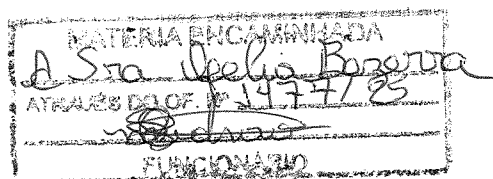 MATÉRIA ENCAMINHADA
A Sra Ofelia Bezerra
ATRAVÉS DO OF. Nº 1477/85
FUNCIONÁRIO